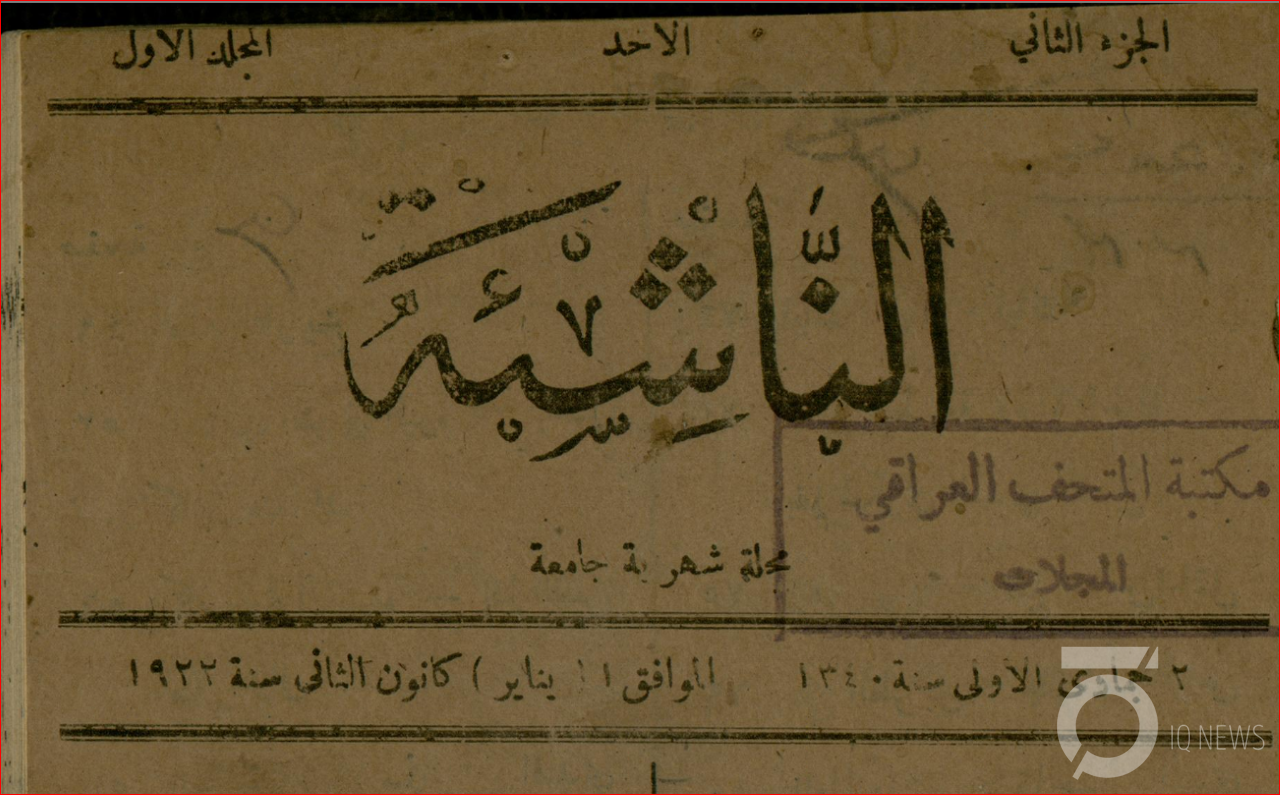 الجزء الثاني الاحد المجلد الاول
النَّاشِئَةُ
مكتبة المتحف العراقي
المجلات
مجلة شهرية جامعة
٢ جماوى الاولى سنة ١٣٤٠ الموافق ١ ( يناير ) كانون الثانى سنة ١٩٢٢
IQ NEWS